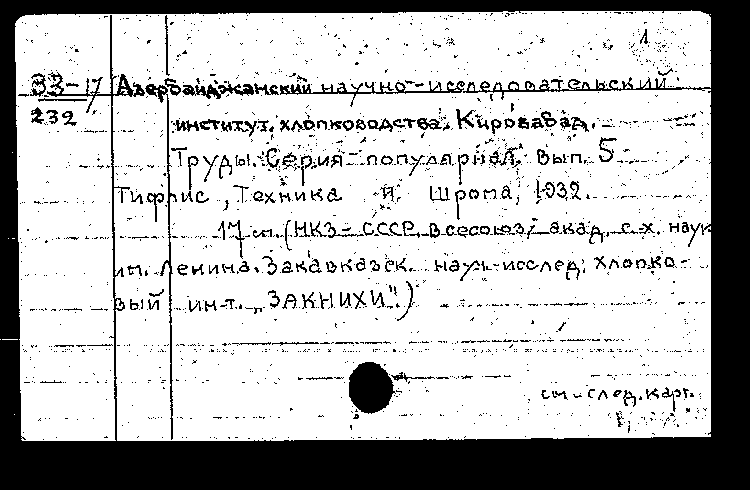 1
33-17 Азербайджанский научно-исследовательский
232 институт хлопководства. Кировабад.
Труды. Серия популярная. Вып. 5
Тифлис, Техника и Шрома, 1932.
17 см. (НКЗ-СССР. Всесоюз. акад. с.-х. наук
им. Ленина. Закавказск. науч-исслед. хлопко-
вый ин-т. „ЗАКНИХИ".)
см. след. карт.